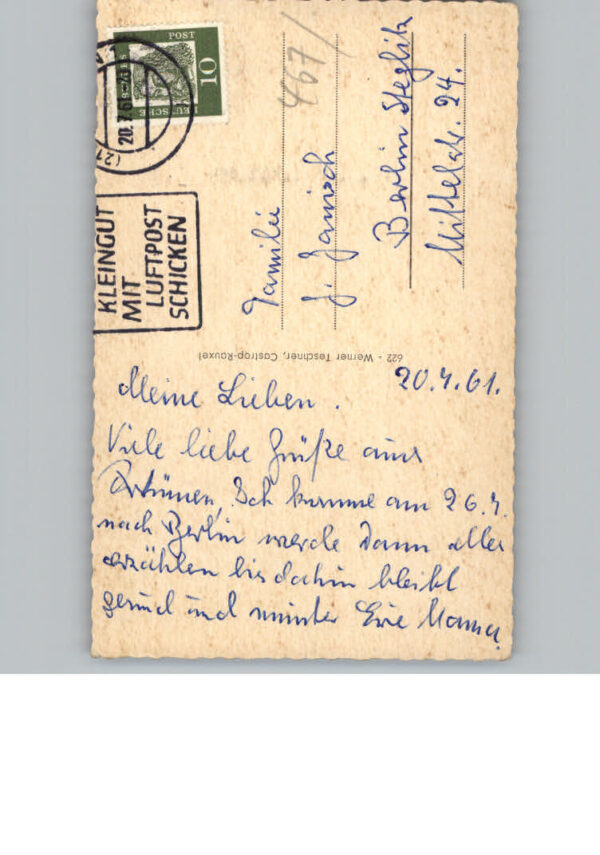 POST
10
DEUTSCHE
20.7.61
(21
KLEINGUT
MIT
LUFTPOST
SCHICKEN
467/
Familie
J. Janisch
Berlin Steglitz
Mittelstr. 24.
622 - Werner Teschner, Castrop-Rauxel
20.7.61.
Meine Lieben.
Viele liebe Grüße aus
Ich komme am 26.7.
nach Berlin werde dann alles
erzählen bis dahin bleibt
gesund und munter Eure Mama